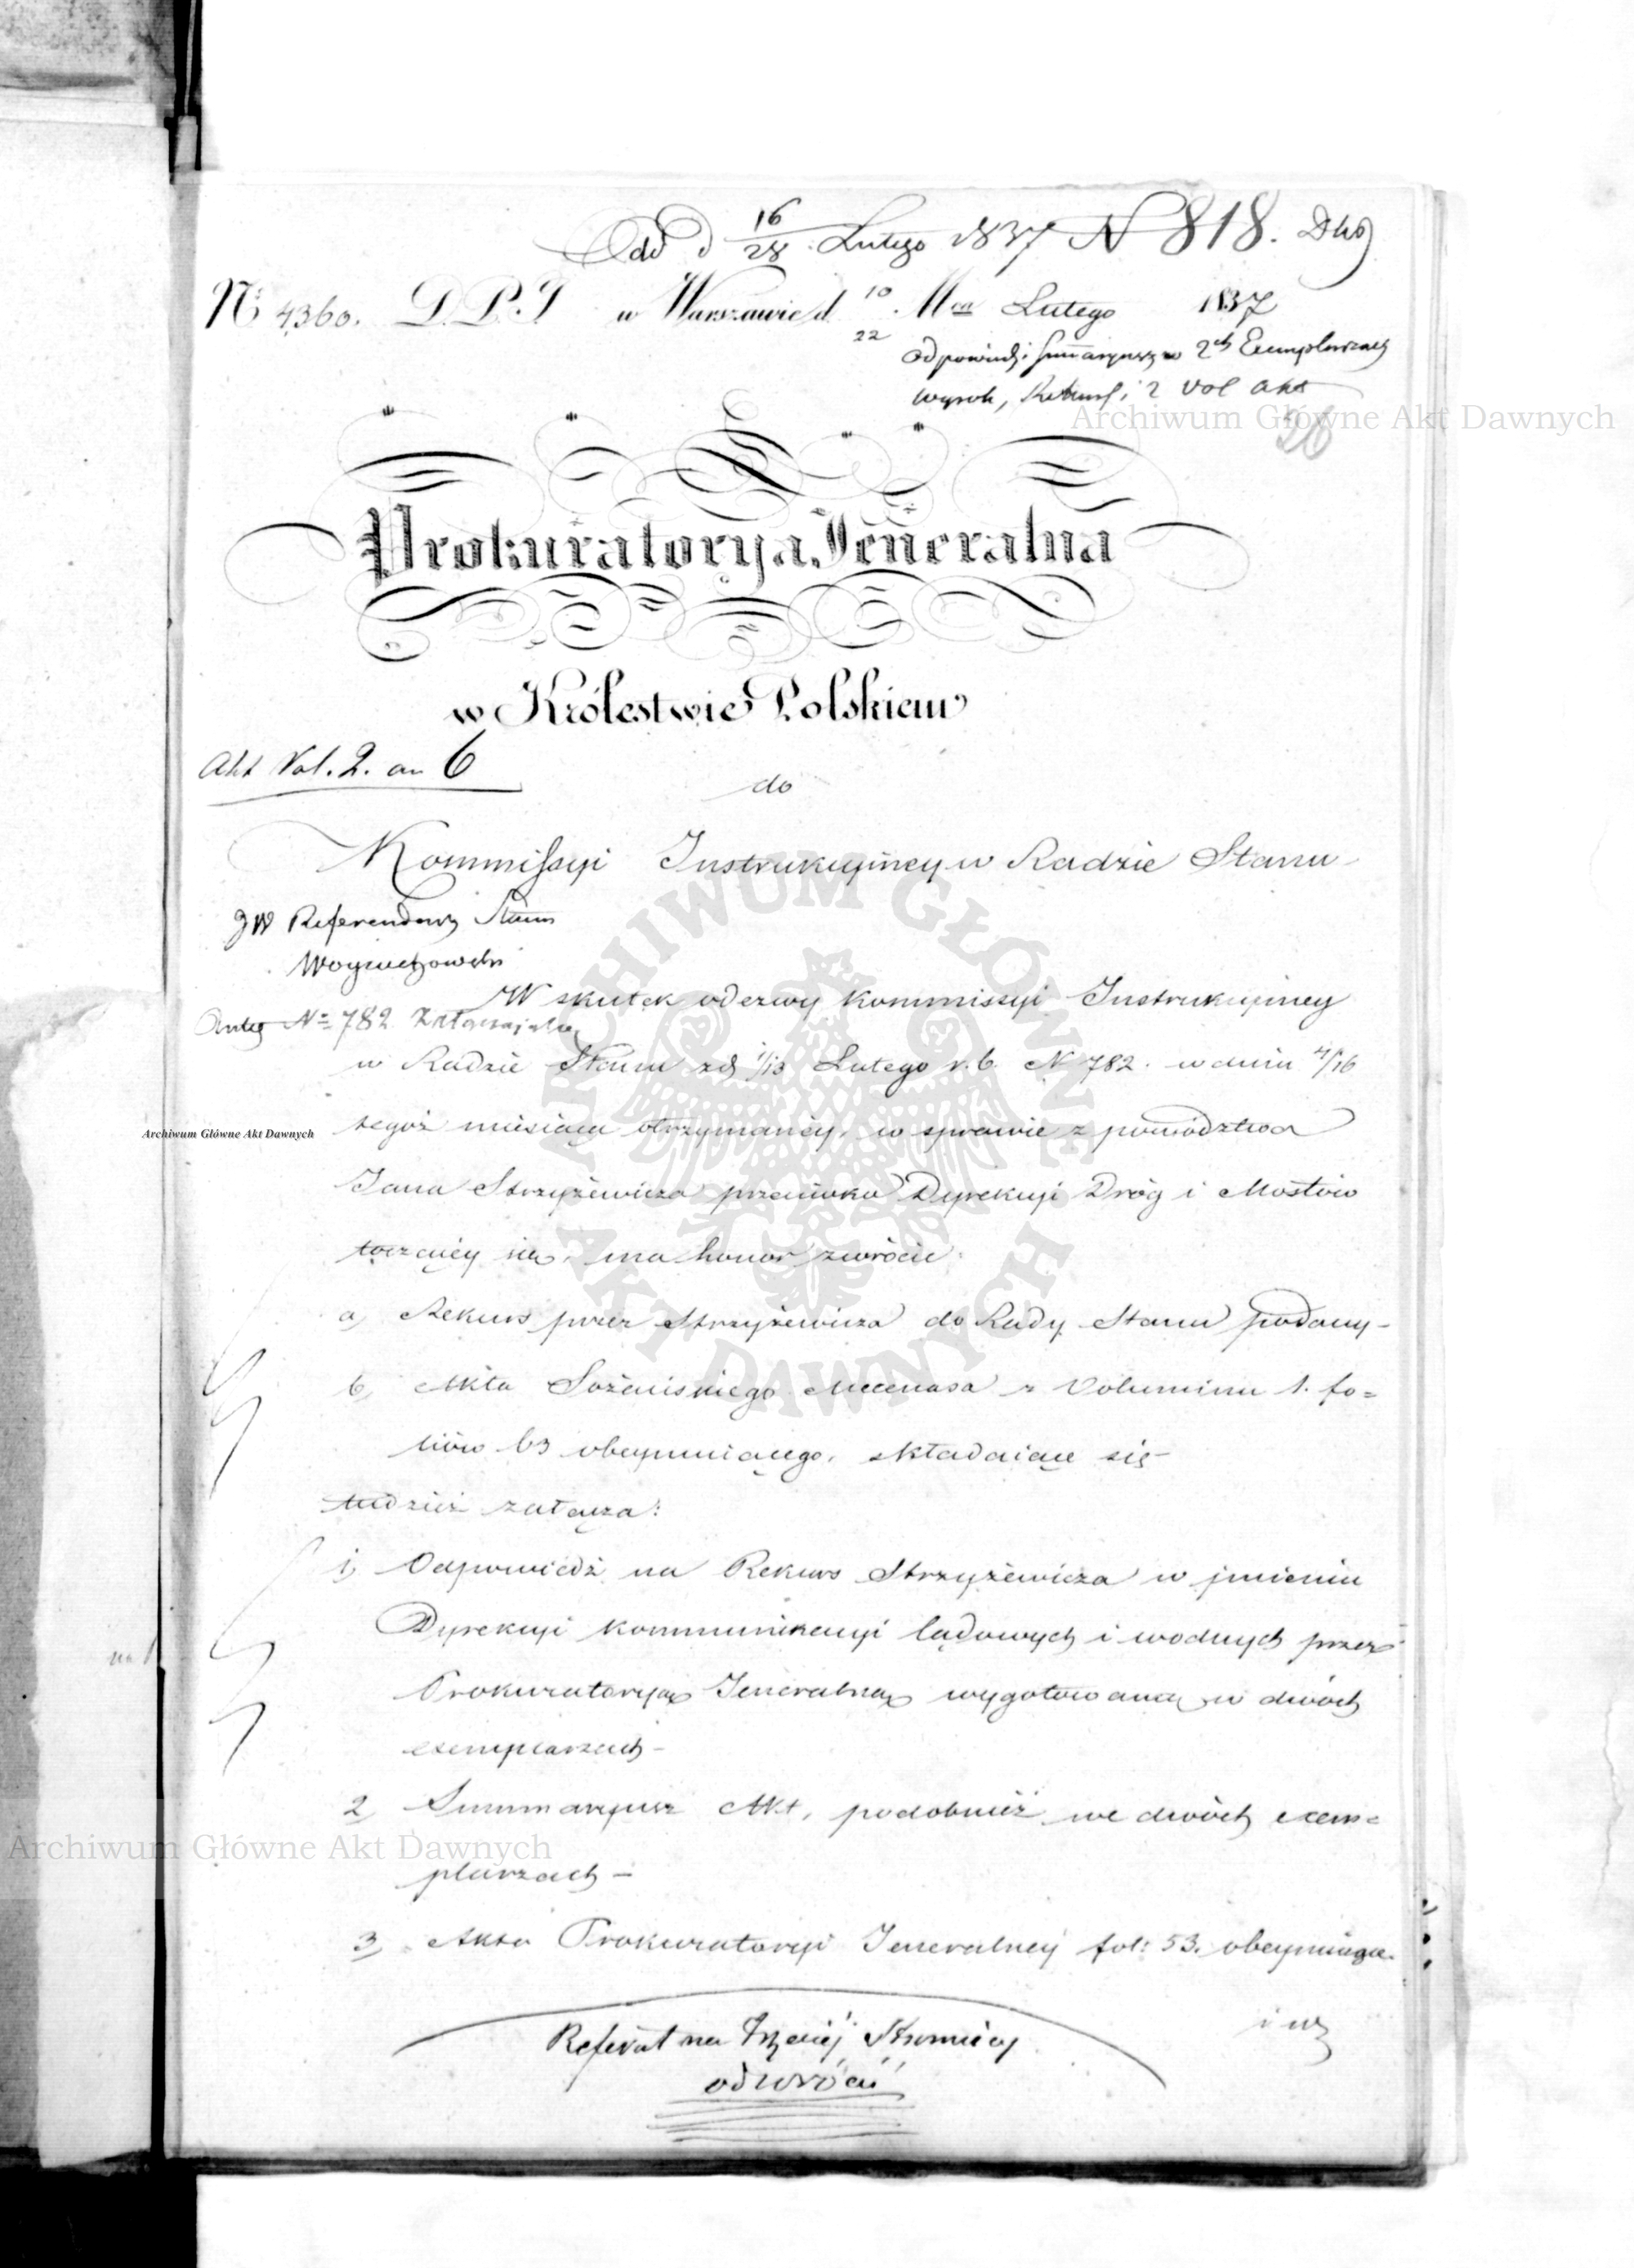 Odd d 16/28 Lutego 1837 N 818. Dło
N: 4360. D. P. J w Warszawie d. 10/22. Mca Lutego 1837
Odpowiedź i Sumaryusz w 2ch Exemplarzach
wyrok, Rekurs, i 2 Vol akt
Archiwum Główne Akt Dawnych
Prokuratorya Jeneralna
w Królestwie Polskiem
Akt Vol. 2. an 6
do
Kommissyi Instrukcyiney w Radzie Stanu
JW Referendarz Stanu
Woyciechowski
W skutek odezwy Kommissyi Instrukcyiney
Anteq No 782 Załącza
w Radzie Stanu z d 1/13 Lutego r. b. N 782. w dniu 4/16
tegoż miesiąca otrzymanéy, w sprawie z powództwa
Archiwum Główne Akt Dawnych
Jana Strzyżewicza przeciwko Dyrekcyi Dróg i Mostów
toczącéy się, ma honor zwrócić:
a, Rekurs przez Strzyżewicza do Rady Stanu podany-
b, Akta Mecenasa z Voluminu 1. fo=
liów 63 obeymuiącego, składaiące się-
tudzież załącza:
1, Odpowiedź na Rekurs Strzyżewicza w imieniu
Dyrekcyi Kommunikacyi lądowych i wodnych przez
Prokuratoryą Jeneralną wygotowaną w dwóch
exemplarzach-
2, Summaryusz Akt, podobnież we dwóch exem=
Archiwum Główne Akt Dawnych
plarzach-
3, Akta Prokuratoryi Jeneralnéy fol: 53. obeymuiące.
Referat na Trzeciéj Stronicy
odwrócić
ARCHIWUM GŁÓWNE AKT DAWNYCH